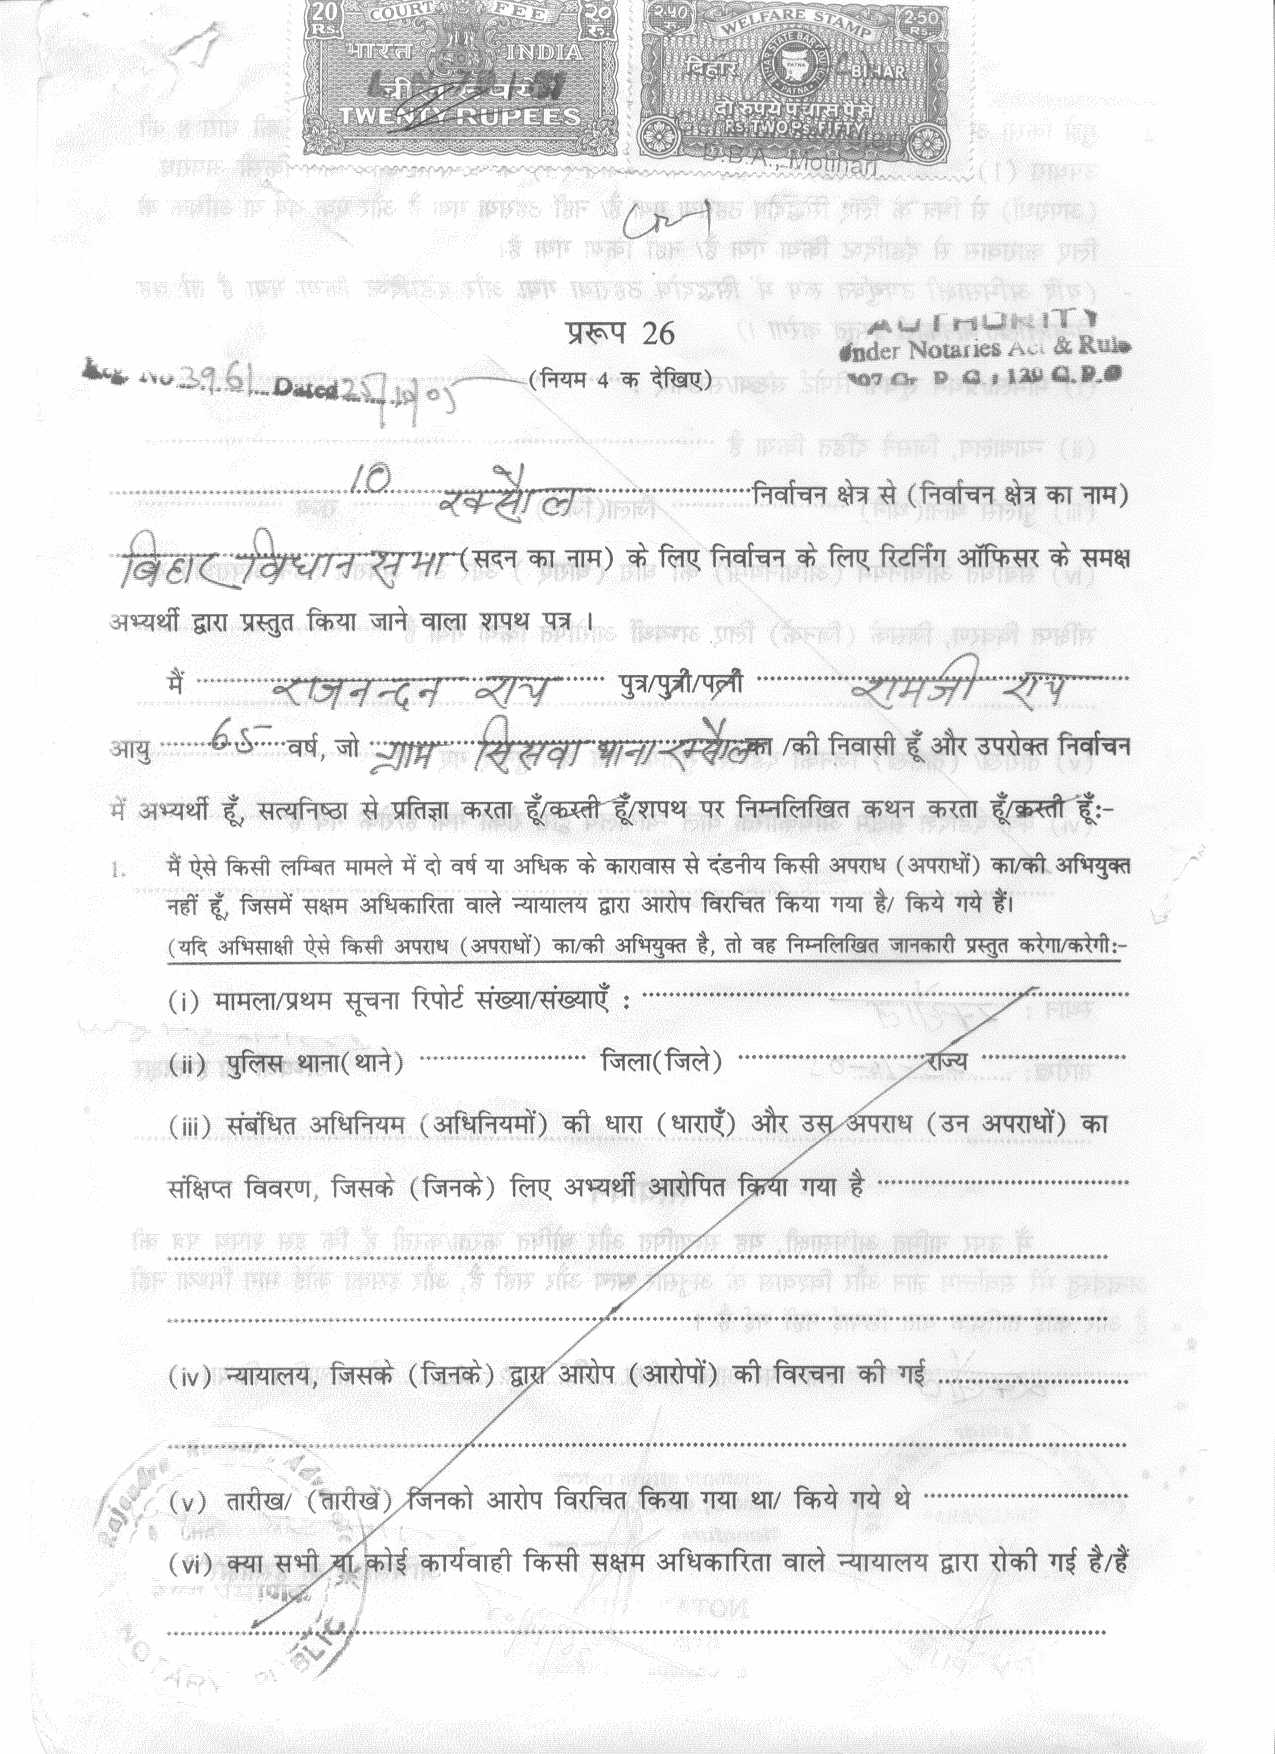 20 COURT FEE २०
Rs. रु.
भारत INDIA
बीस रुपये
TWENTY RUPEES
२.५० WELFARE STAMP 2.50
रु. RS
STATE BAR COUNCIL PATNA
बिहार BIHAR
दो रुपये पचास पैसे
RS. TWO Ps. FIFTY
D.B.A., Motihari
प्ररूप 26
AUTHORITY
Under Notaries Act & Rule
Reg. No 3961 Dated 25/10/05
(नियम 4 क देखिए)
10 रक्सौल निर्वाचन क्षेत्र से (निर्वाचन क्षेत्र का नाम)
बिहार विधान सभा (सदन का नाम) के लिए निर्वाचन के लिए रिटर्निंग ऑफिसर के समक्ष
अभ्यर्थी द्वारा प्रस्तुत किया जाने वाला शपथ पत्र ।
मैं राजनन्दन राय पुत्र/पुत्री/पत्नी रामजी राय
आयु 65 वर्ष, जो ग्राम सिसवा थाना रक्सौल का /की निवासी हूँ और उपरोक्त निर्वाचन
में अभ्यर्थी हूँ, सत्यनिष्ठा से प्रतिज्ञा करता हूँ/करती हूँ/शपथ पर निम्नलिखित कथन करता हूँ/करती हूँ:-
1. मैं ऐसे किसी लम्बित मामले में दो वर्ष या अधिक के कारावास से दंडनीय किसी अपराध (अपराधों) का/की अभियुक्त
नहीं हूँ, जिसमें सक्षम अधिकारिता वाले न्यायालय द्वारा आरोप विरचित किया गया है/ किये गये हैं।
(यदि अभिसाक्षी ऐसे किसी अपराध (अपराधों) का/की अभियुक्त है, तो वह निम्नलिखित जानकारी प्रस्तुत करेगा/करेगी:-
(i) मामला/प्रथम सूचना रिपोर्ट संख्या/संख्याएँ :
(ii) पुलिस थाना(थाने) जिला(जिले) राज्य
(iii) संबंधित अधिनियम (अधिनियमों) की धारा (धाराएँ) और उस अपराध (उन अपराधों) का
संक्षिप्त विवरण, जिसके (जिनके) लिए अभ्यर्थी आरोपित किया गया है
(iv) न्यायालय, जिसके (जिनके) द्वारा आरोप (आरोपों) की विरचना की गई
(v) तारीख/ (तारीखें) जिनको आरोप विरचित किया गया था/ किये गये थे
(vi) क्या सभी या कोई कार्यवाही किसी सक्षम अधिकारिता वाले न्यायालय द्वारा रोकी गई है/हैं
Rajendra
NOTARY PUBLIC